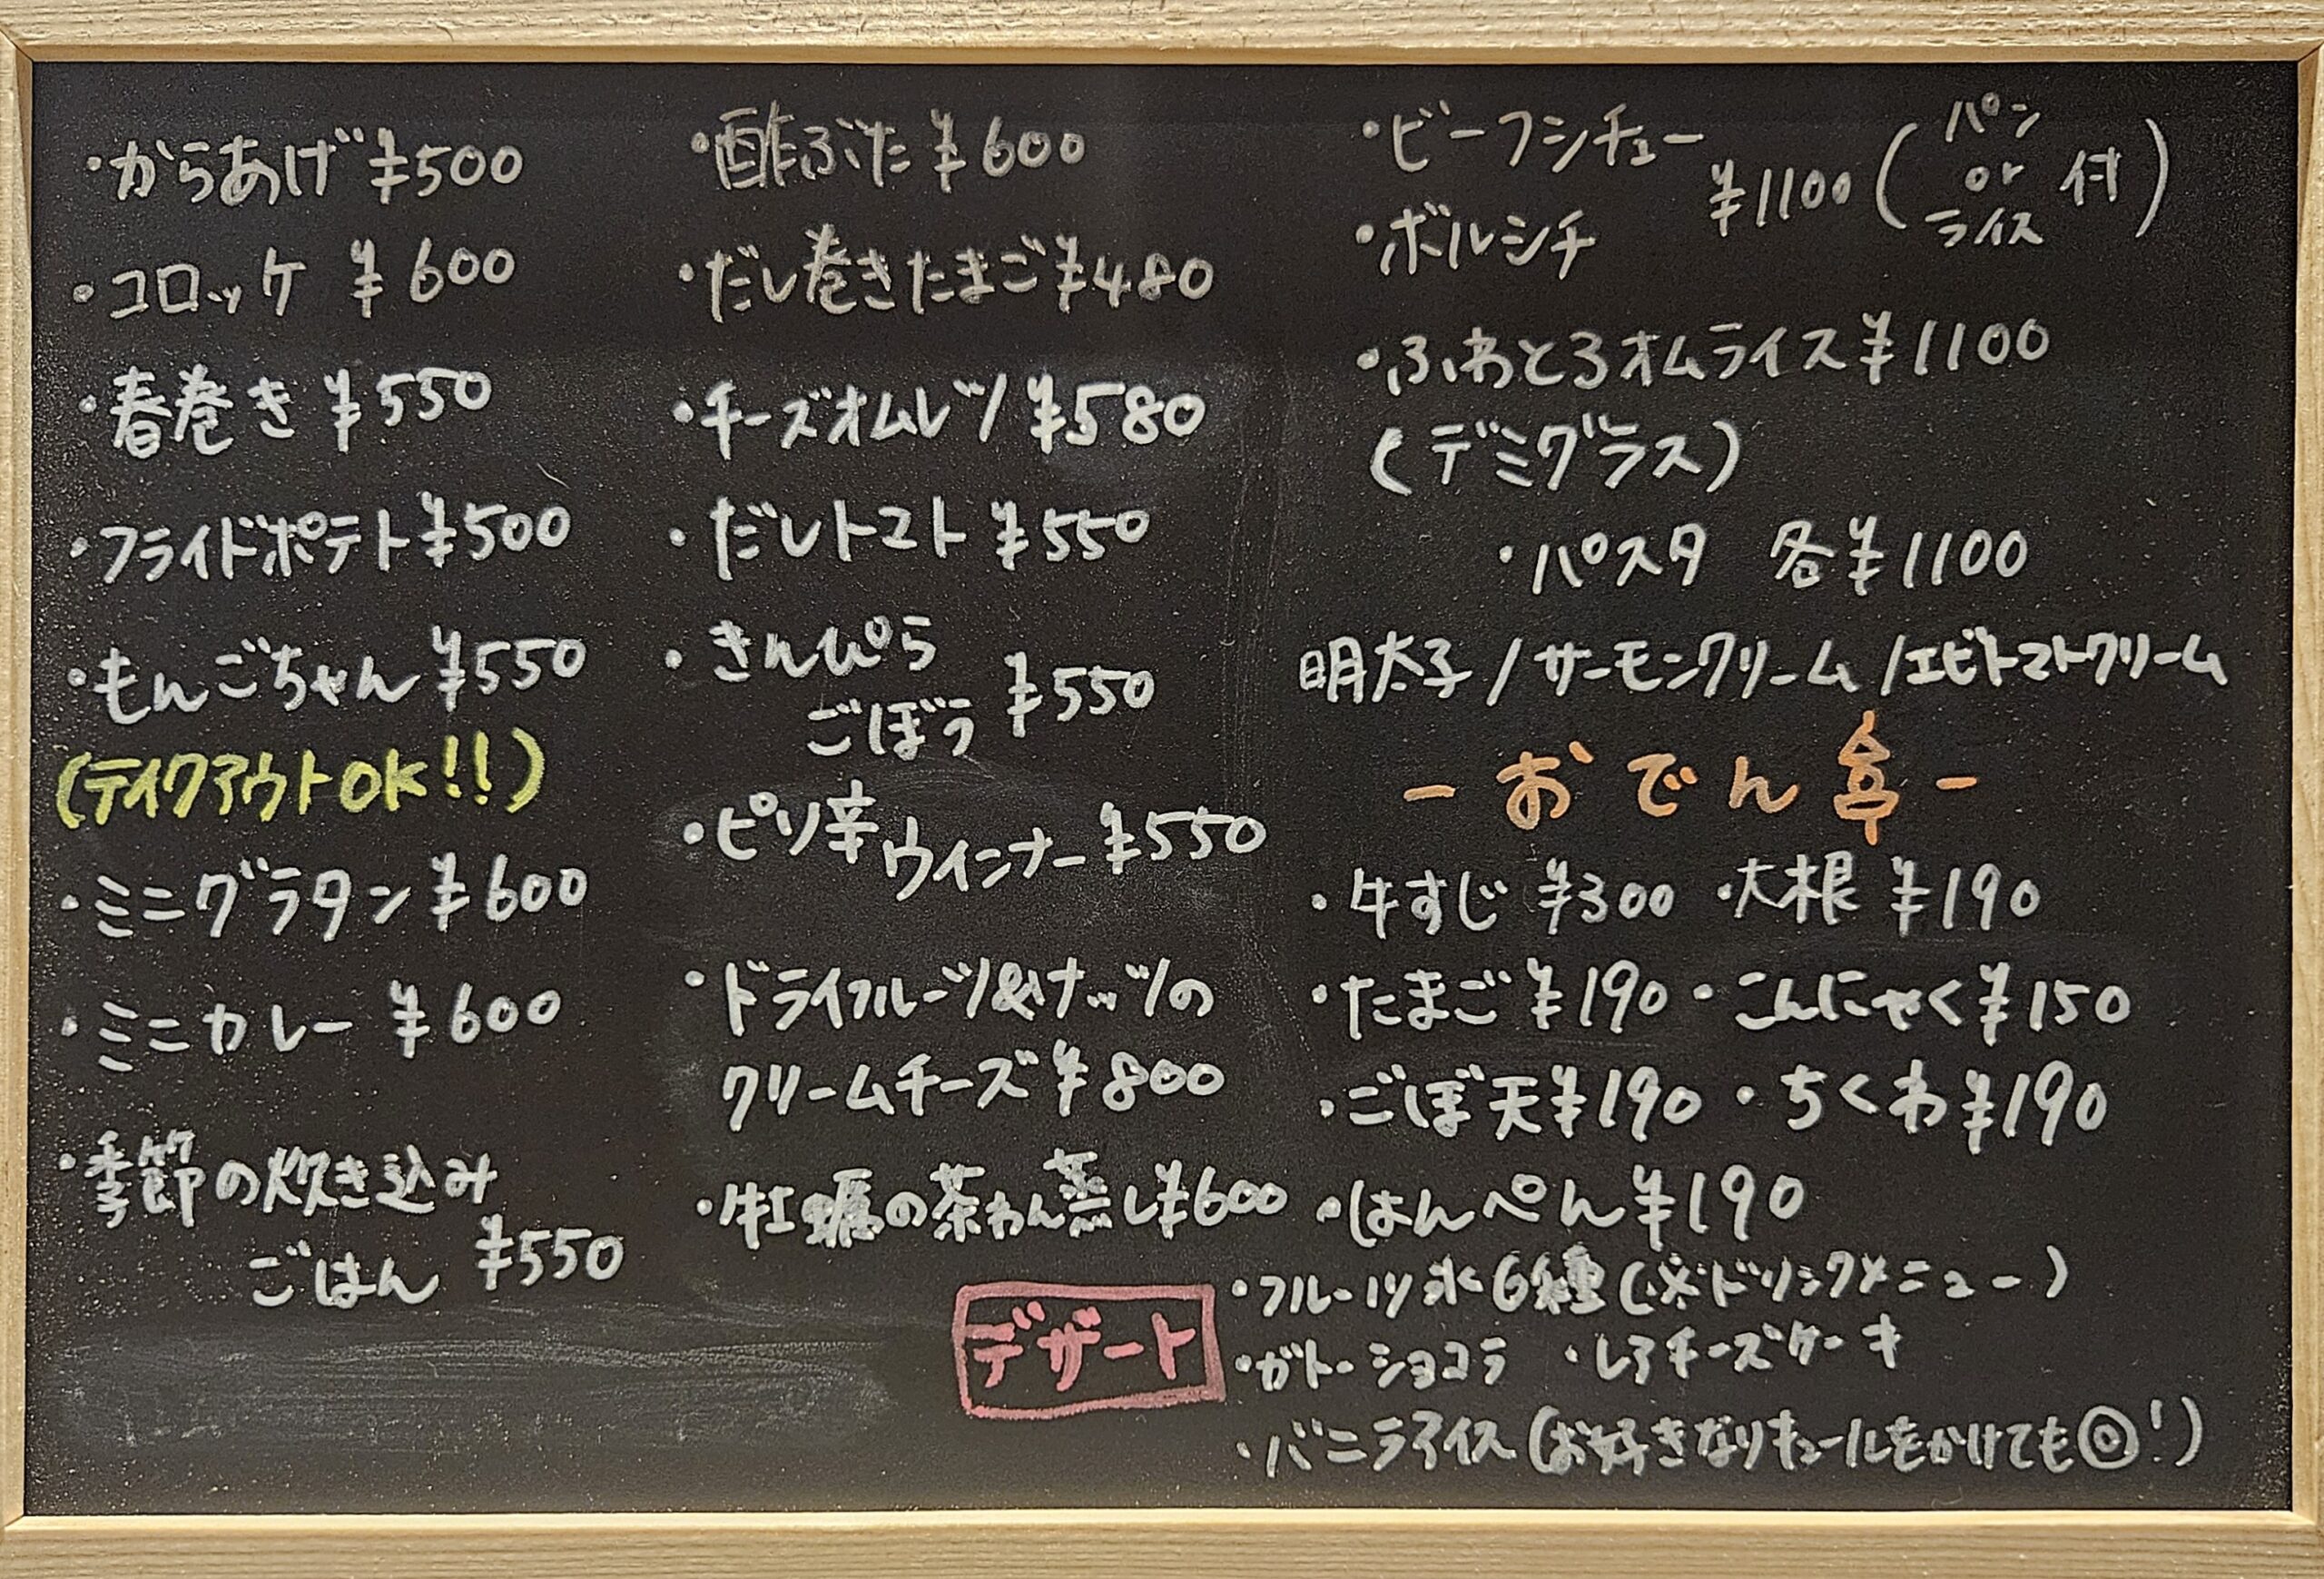 ・からあげ ¥500
・コロッケ ¥600
・春巻き ¥550
・フライドポテト ¥500
・もんごちゃん ¥550
(テイクアウトOK!!)
・ミニグラタン ¥600
・ミニカレー ¥600
・季節の炊き込み
ごはん ¥550
・酢ぶた ¥600
・だし巻きたまご ¥480
・チーズオムレツ ¥580
・だしトマト ¥550
・きんぴら
ごぼう ¥550
・ピリ辛ウインナー ¥550
・ドライフルーツ&ナッツの
クリームチーズ ¥800
・牡蠣の茶わん蒸し ¥600
・ビーフシチュー
・ボルシチ
¥1100 (パン or ライス 付)
・ふわとろオムライス ¥1100
(デミグラス)
・パスタ 各¥1100
明太子/サーモンクリーム/エビトマトクリーム
-おでん-
・牛すじ ¥300 ・大根 ¥190
・たまご ¥190 ・こんにゃく ¥150
・ごぼ天 ¥190 ・ちくわ ¥190
・はんぺん ¥190
デザート
・フルーツ氷6種(※ドリンクメニュー)
・ガトーショコラ ・レアチーズケーキ
・バニラアイス(お好きなリキュールをかけても◎!)